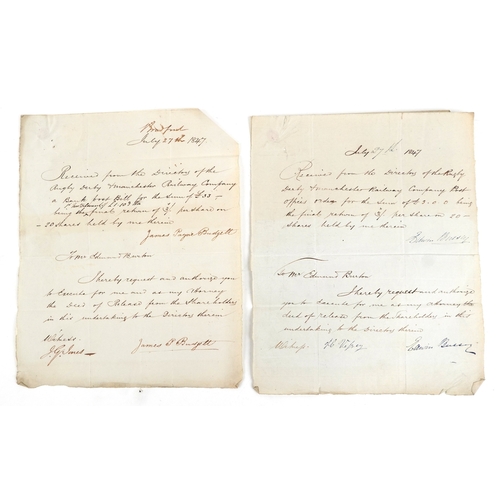 July 27th 1847
Received from the Directors of the
Rugby Derby & Manchester Railway Company
a Bank Post Bill for the Sum of £
being the final return of 3/ per share on
shares held by me therein
James Payne Budgett
To Mr Edmund Burton
I hereby request and authorize you
to Execute for me and as my Attorney
the Deed of Release from the Shareholders
in this undertaking to the Directors therein
Witness
James P. Budgett
July 27th 1847
Received from the Directors of the Rugby
Derby & Manchester Railway Company Post
office order for the sum of £
being the final return of 3/ per share on
shares held by me therein
Edwin
To Mr Edmund Burton
I hereby request and authorize
you to Execute for me as my Attorney the
deed of release from the Shareholders in this
undertaking to the Directors therein
Witness
Edwin